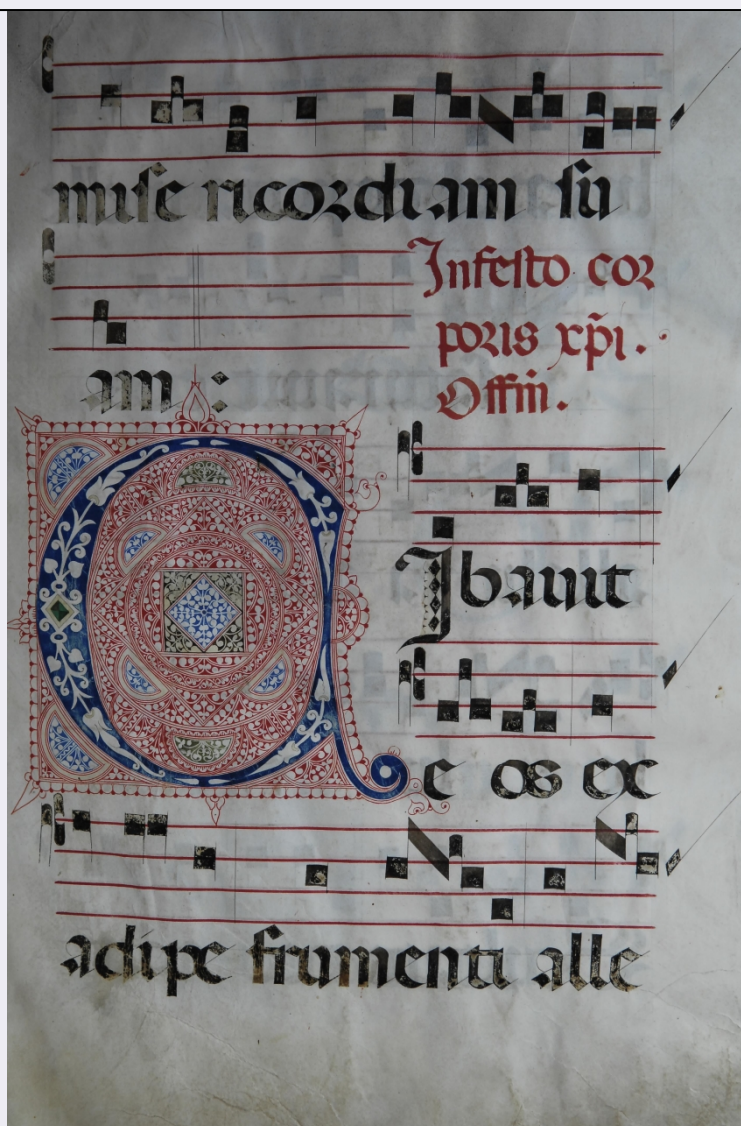 mise ricordiam su
In festo cor
poris xp̄i.
Offim̄.
am :
C Ibavit
e os ex
adipe frumenti alle